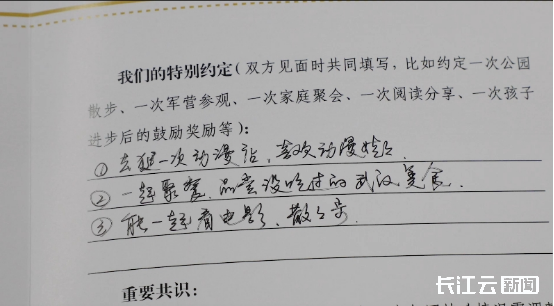 我们的特别约定(双方见面时共同填写，比如约定一次公园
散步、一次军营参观、一次家庭聚会、一次阅读分享、一次孩子
进步后的鼓励奖励等)：
①去逛一次动漫站，喜欢动漫
②一起聚餐，品尝没吃过的武汉美食.
③能一起看电影、散散步
重要共识：
长江云新闻